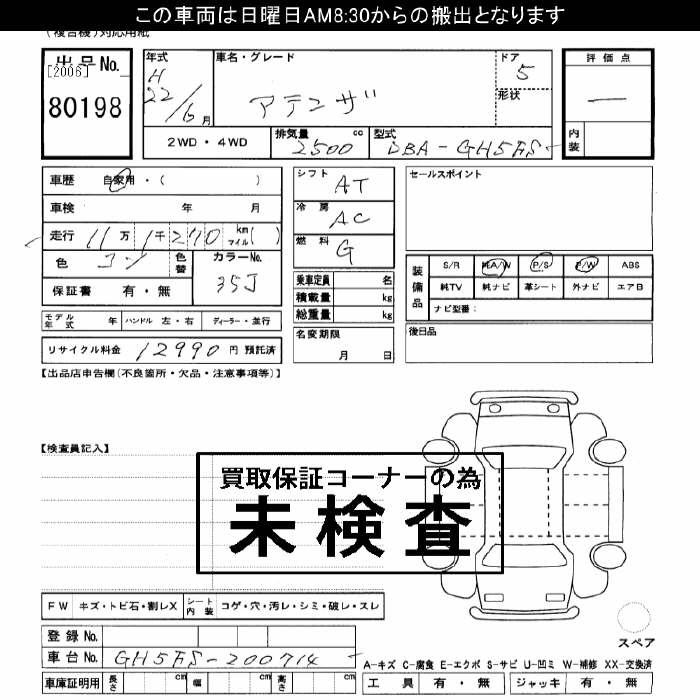 この車両は日曜日AM8:30からの搬出となります
(複合機)対応用紙
出品No.
[2006]
80198
年式
H
22/6月
車名・グレード
アテンザ
ドア
5
形状
評価点
—
内装
2WD・4WD
排気量
cc
2500
型式
DBA-GH5FS
車歴 自家用・( )
車検 年 月
走行 11万1千270 km マイル( )
色 コン 色替
カラーNo.
35J
保証書 有・無
モデル年式 年 ハンドル 左・右 ディーラー・並行
リサイクル料金 12990 円 預託済
シフト AT
冷房 AC
燃料 G
乗車定員 名
積載量 kg
総重量 kg
名変期限
月 日
セールスポイント
装備品
S/R 純A/W P/S P/W ABS
純TV 純ナビ 革シート 外ナビ エアB
ナビ型番:
後日品
【出品店申告欄(不良箇所・欠品・注意事項等)】
【検査員記入】
買取保証コーナーの為
未検査
FW キズ・トビ石・割レX シート内装 コゲ・穴・汚レ・シミ・破レ・スレ
登録No.
車台No. GH5FS-200714
車庫証明用 長さ cm 幅 cm 高さ cm
スペア
A-キズ C-腐食 E-エクボ S-サビ U-凹ミ W-補修 XX-交換済
工具 有・無 ジャッキ 有・無